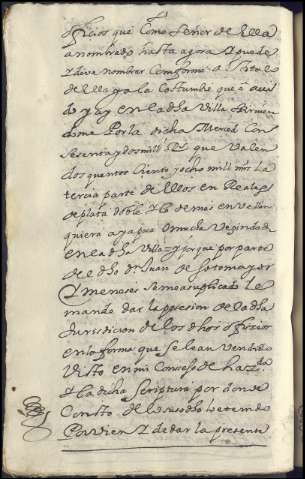 ofiçios que Como Señor de ella
a nombrado hasta agora y puede
y deva nombrar Comforme a el titulo
de ella y a la Costumbre que a avi
do y ay en la dha Villa sirvien
dome Por la dicha Merced Con
sesenta y dos mill Rs que valen
dos quentos Ciento y ocho mill mrs la
terçia parte de ellos en Reales
de plata doble y lo demas en vellon
quiera aya poca o mucha Vezindad
en la dha Villa y porque por parte
de el dho Dn Juan de sotomayor
y meneses se me a suplicado le
mande dar la posesion de la dha
Jurisdicion de los dhos ofiçios
en la forma que se le an vendido
Visto en mi Consejo de hazda
y la dicha Scriptura por donde
Consto de lo susodho lo e tenido
Por vien y de dar la presente